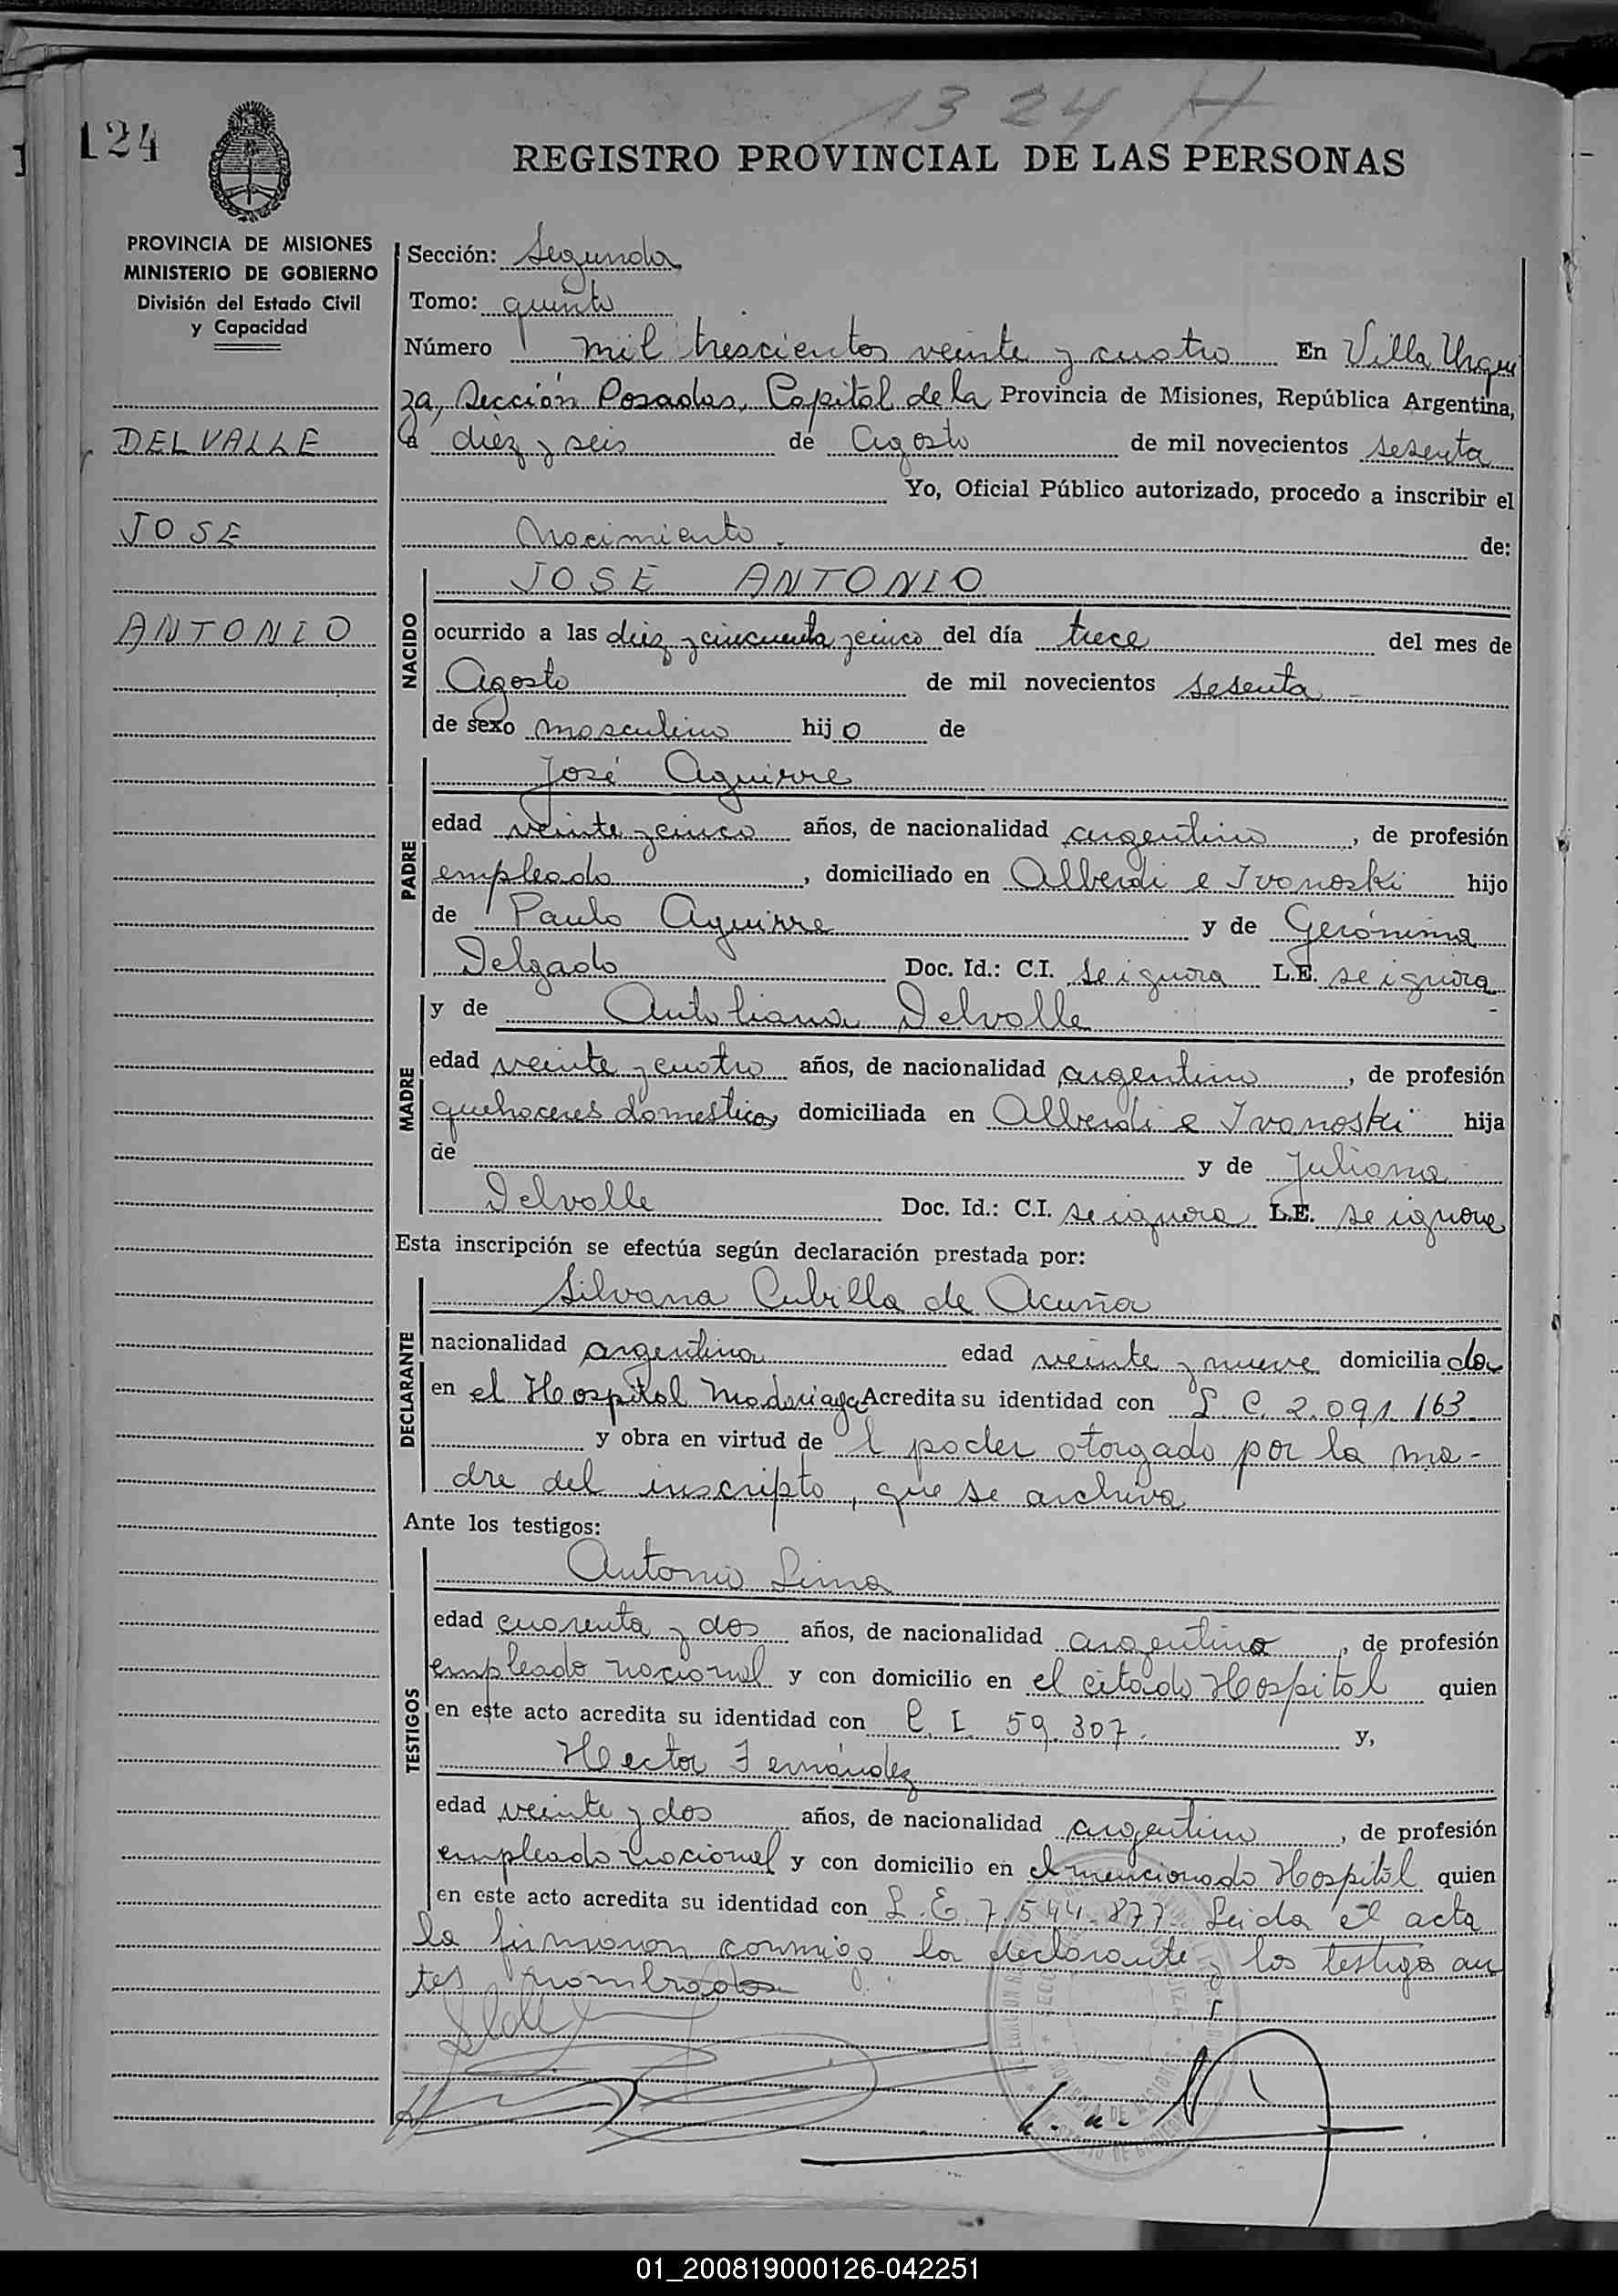 1324 H
124
REGISTRO PROVINCIAL DE LAS PERSONAS
PROVINCIA DE MISIONES
MINISTERIO DE GOBIERNO
División del Estado Civil
y Capacidad
DELVALLE
JOSE
ANTONIO
Sección: Segunda
Tomo: quinto
Número mil trescientos veinte y cuatro En Villa Urqui
za, Sección Posadas, Capital de la Provincia de Misiones, República Argentina,
a diez y seis de Agosto de mil novecientos sesenta
Yo, Oficial Público autorizado, procedo a inscribir el
Nacimiento. de:
NACIDO
JOSE ANTONIO
ocurrido a las diez y cincuenta y cinco del día trece del mes de
Agosto de mil novecientos sesenta
de sexo masculino hijo de
PADRE
José Aguirre
edad veinte y cinco años, de nacionalidad argentino, de profesión
empleado, domiciliado en Alberdi e Ivanoski hijo
de Paulo Aguirre y de Gerónima
Delgado Doc. Id.: C.I. se ignora L.E. se ignora
MADRE
y de Antoliana Delvalle
edad veinte y cuatro años, de nacionalidad argentina, de profesión
quehaceres domesticos, domiciliada en Alberdi e Ivanoski hija
de y de Juliana
Delvalle Doc. Id.: C.I. se ignora L.E. se ignora
Esta inscripción se efectúa según declaración prestada por:
DECLARANTE
Silvana Cubilla de Acuña
nacionalidad argentina edad veinte y nueve domiciliada
en el Hospital Madariaga Acredita su identidad con L.C. 2.091.163
y obra en virtud del poder otorgado por la ma-
dre del inscripto, que se archiva
Ante los testigos:
TESTIGOS
Antonio Lima
edad cuarenta y dos años, de nacionalidad argentino, de profesión
empleado nacional y con domicilio en el citado Hospital quien
en este acto acredita su identidad con C.I. 59.307. y,
Hector Fernández
edad veinte y dos años, de nacionalidad argentino, de profesión
empleado nacional y con domicilio en el mencionado Hospital quien
en este acto acredita su identidad con L.E. 7.544.877. Leida el acta
la firmaron conmigo la declarante y los testigos an
tes nombrados
01_200819000126-042251